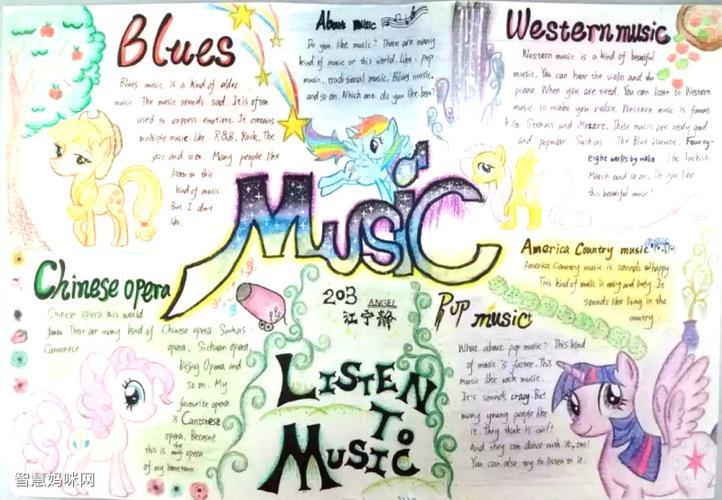 Blues
Blues music is a kind of older
music. The music sounds sad. It is often
used to express emotions. It contains
multiple music. like R&B, Rock, The
jazz and so on. Many people like
listen to this
kind of music
But I don't
like.
About music
Do you like music? There are many
kind of music in this world. Like: pop
music, traditional music, Blues music,
and so on. Which one do you like best?
Western music
Western music is a kind of beautiful
music. You can hear the violin and the
piano. When you are tired. You can listen to Western
music to make you relax. Western music is famous
Strauss and Mozart. Their music are really good
and popular. Such as: The Blue Danube.
eight works by violin. The Turkish
March and so on. Do you like
this beautiful music?
Music
Chinese opera
Chinese opera is world
There are many kind of Chinese opera. Such as:
Cantonese opera, Sichuan opera,
Beijing Opera and
so on. My
favourite opera
is Cantonese
opera. Because
this is the opera
of my hometown.
203 ANGEL
江宁静
LISTEN
TO
MUSIC
America Country music
America Country music is sounds happy
This kind of music is easy and lively. It
sounds like living in the
country.
Pop music
What about pop music? This kind
of music is faster. This
music like rock music.
It's sounds crazy. But
many young people like
it. They think is cool!
And they can dance with it, too!
You can also try to listen to it.
智慧妈咪网